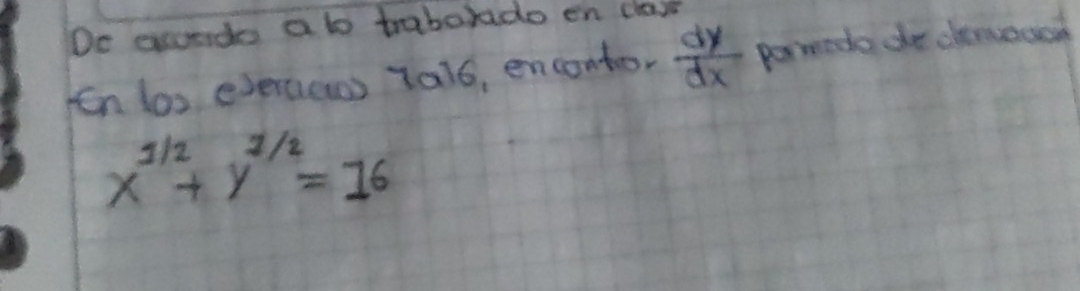 De acuerdo a lo trabajado en clase
En los ejercicios 1 al 6, encontrar dy/dx por medio de derivación
x^1/2 + y^1/2 = 16